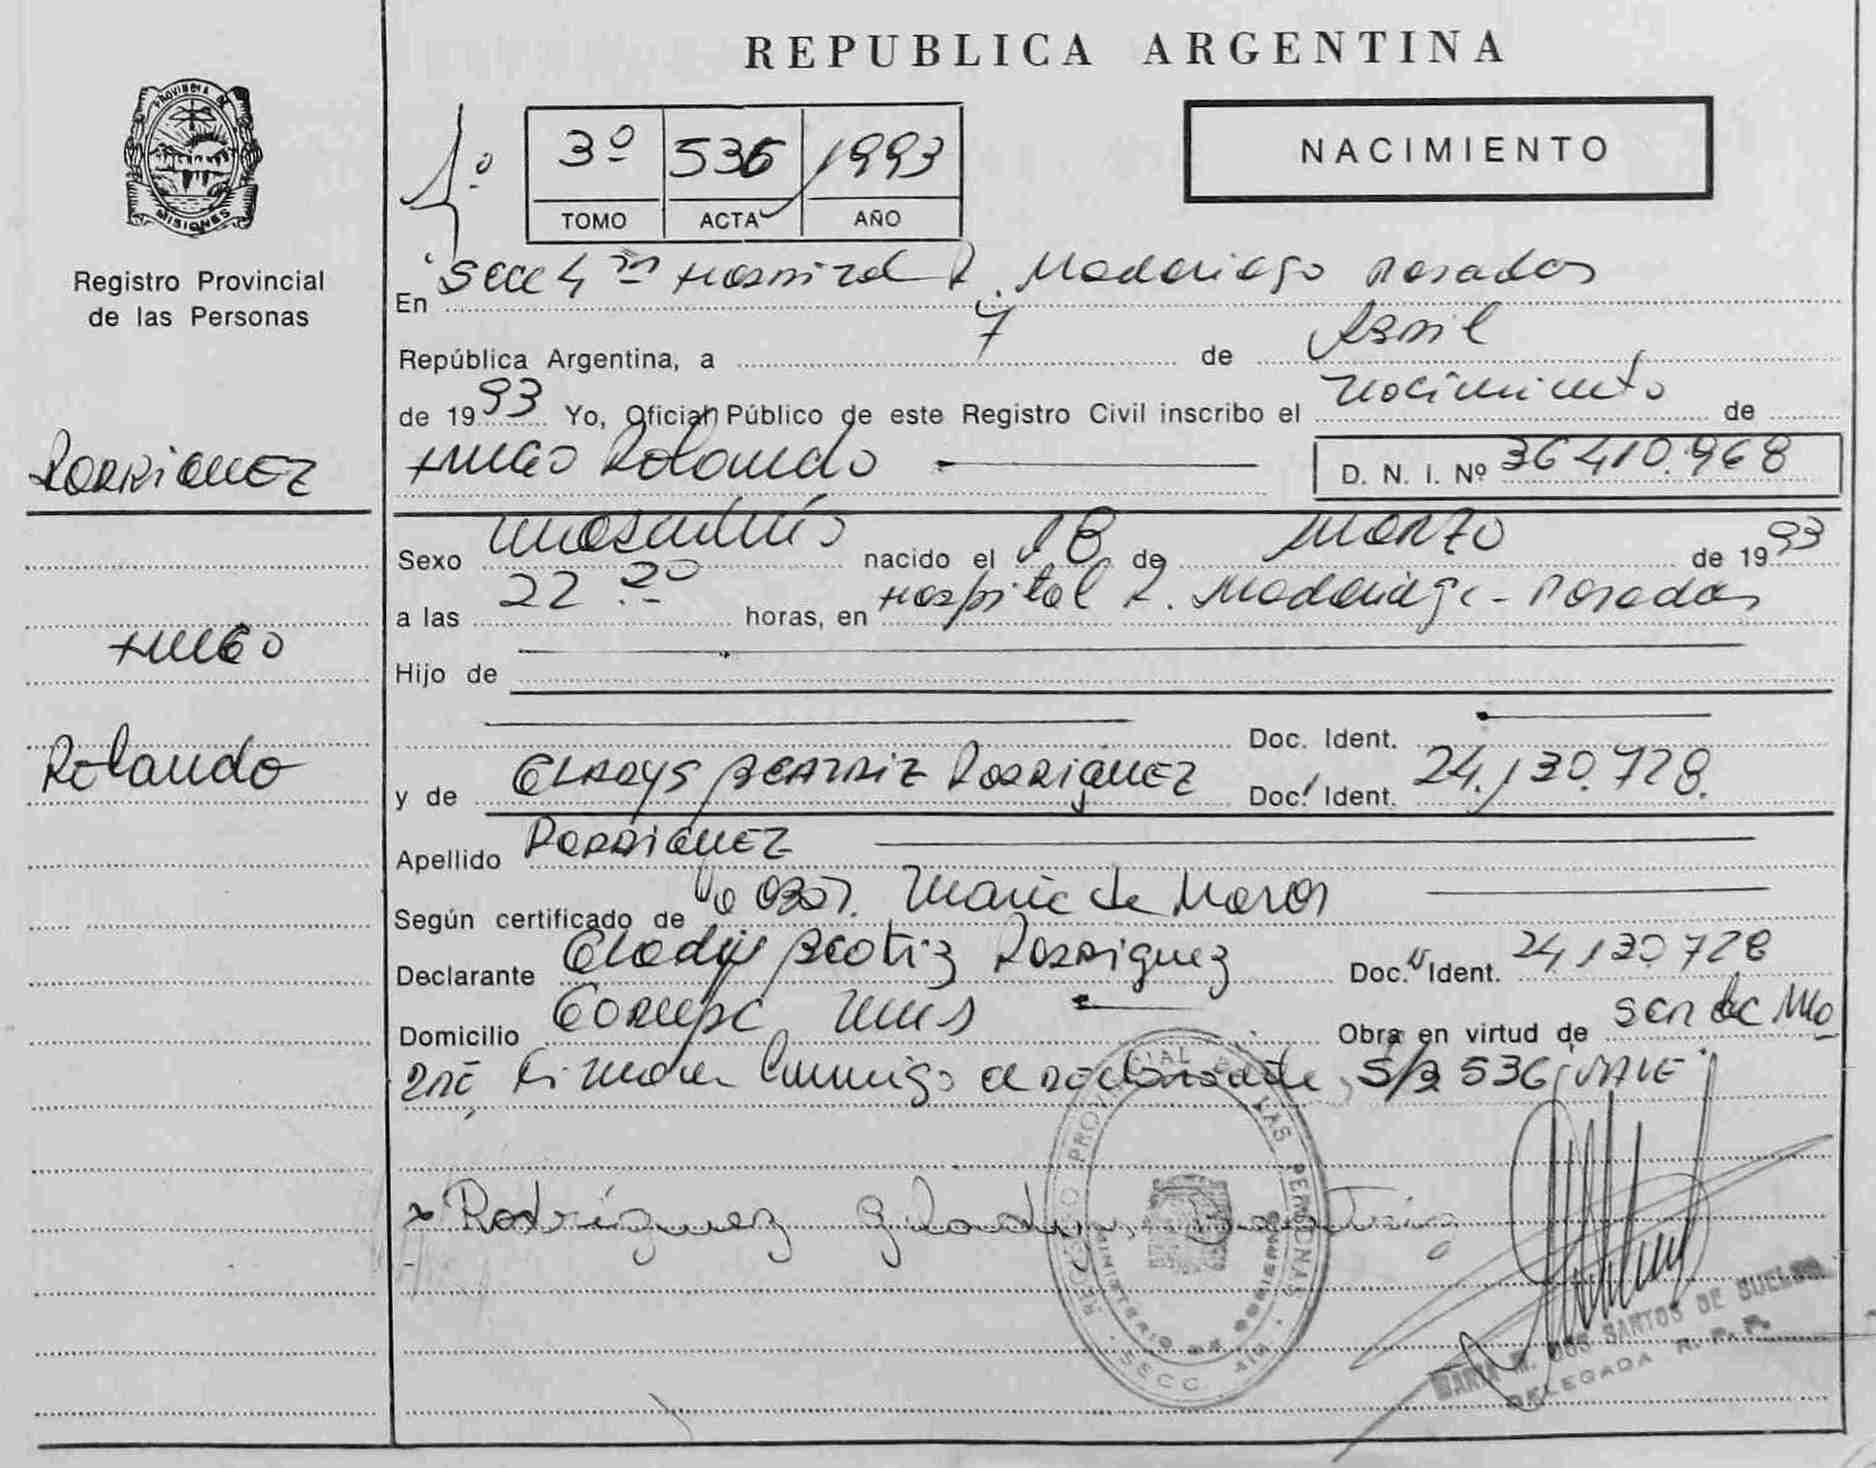 REPUBLICA ARGENTINA
PROVINCIA DE
MISIONES
Registro Provincial
de las Personas
1º
3º 536 1993
TOMO ACTA AÑO
NACIMIENTO
En Secc 4ta Hospital R. Madariaga Posadas
República Argentina, a 7 de Abril
de 1993 Yo, Oficial Público de este Registro Civil inscribo el nacimiento de
RODRIGUEZ
HUGO Rolando D. N. I. Nº 36410.968
Sexo masculino nacido el 18 de MARZO de 1993
a las 22 20 horas, en Hospital R. Madariaga - Posadas
HUGO
Hijo de
Doc. Ident.
Rolando
y de GLADYS BEATRIZ RODRIGUEZ Doc. Ident. 24.130.728.
Apellido RODRIGUEZ
Según certificado de Obst. Maria de
Declarante Gladys Beatriz Rodriguez Doc. Ident. 24.130.728
Domicilio Garupa Mnes Obra en virtud de ser la Ma
dre Firma conmigo el declarante S/B 536 VALE
x Rodríguez Gladys Beatriz
REGISTRO PROVINCIAL DE LAS PERSONAS
MINISTERIO DE GOBIERNO
SECC. 4ta
MARIA M. DOS SANTOS DE
DELEGADA R. P. P.